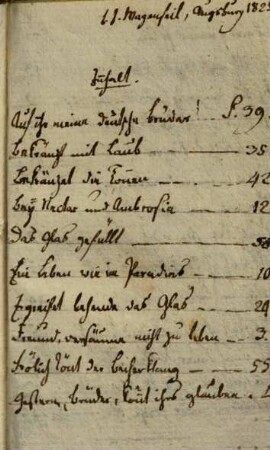 C. J. Wagenseil, Augsburg 182
Inhalt.
Auf ihr meine deutschen Brüder! S. 39
Bekränzt mit Laub — 35
Bekränzet die Tonnen — 42
Bey Nectar und Ambrosia — 12
Das Glas gefüllt — 58
Ein Leben wie im Paradies — 10
Ergreifet behende das Glas — 29
Freund, versäume nicht zu leben — 3
Frölich tönt der Becherklang — 55
Gestern, Brüder, könnt ihrs glauben